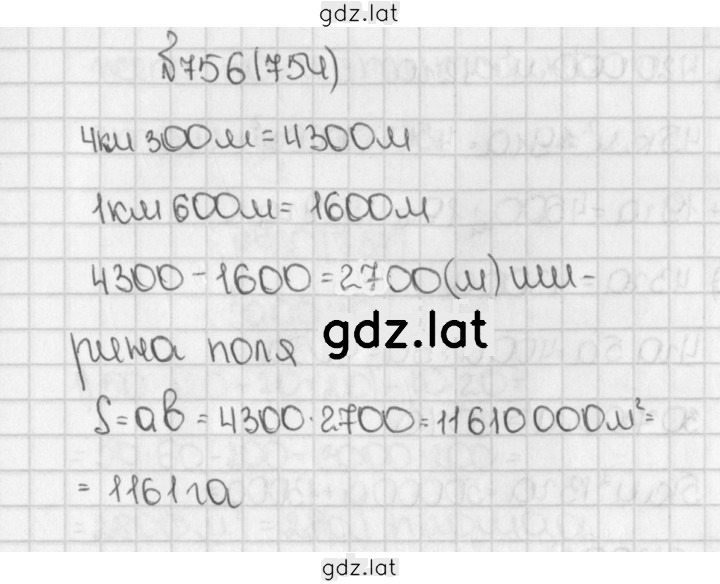 gdz.lat
№756(754)
4км 300м=4300м
1км 600м= 1600м
4300-1600=2700(м) ши-
рина поля
gdz.lat
S=aв = 4300·2700=11610000м²=
= 1161га
gdz.lat